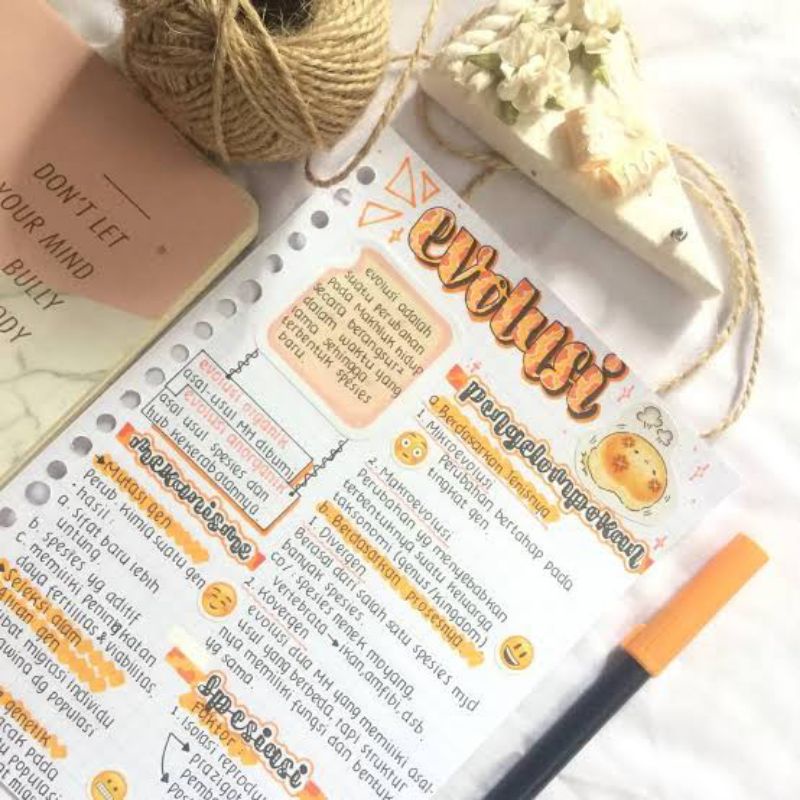 DON'T LET
YOUR MIND
BULLY
ODY
evolusi
evolusi adalah
suatu perubahan
pada makhluk hidup
secara berangsur2
dalam waktu yang
lama sehingga
terbentuk spesies
baru.
evolusi organik
asal-usul MH dibumi
evolusi anorganik
asal usul spesies dan
hub kekerabatannya
mekanisme
Mutasi gen
Perub. kimia suatu gen
• hasil:
a. sifat baru lebih
untung
b. spesies yg aditif
c. memiliki peningkatan
daya fertilitas & viabilitas
Seleksi alam
liran gen
bat migrasi individu
awing dg populasi
genetik
acak pada
u populasi
pengelompokan
a. Berdasarkan Jenisnya
1. Mikroevolusi
Perubahan bertahap pada
tingkat gen
2. Makroevolusi
Perubahan yg menyebabkan
terbentuknya suatu keluarga
taksonomi (genus/kingdom)
b. Berdasarkan Prosesnya
1. Divergen
Berasal dari salah satu spesies mjd
banyak spesies
co/: spesies nenek moyang
vertebrata → ikan, amfibi, dsb.
2. Kovergen
evolusi dua MH yang memiliki asal-
usul yang berbeda, tapi struktur
nya memiliki fungsi dan bentuk
yg sama
Spesiasi
Faktor:
1. Isolasi reproduk
prazigot
Pembe
Post